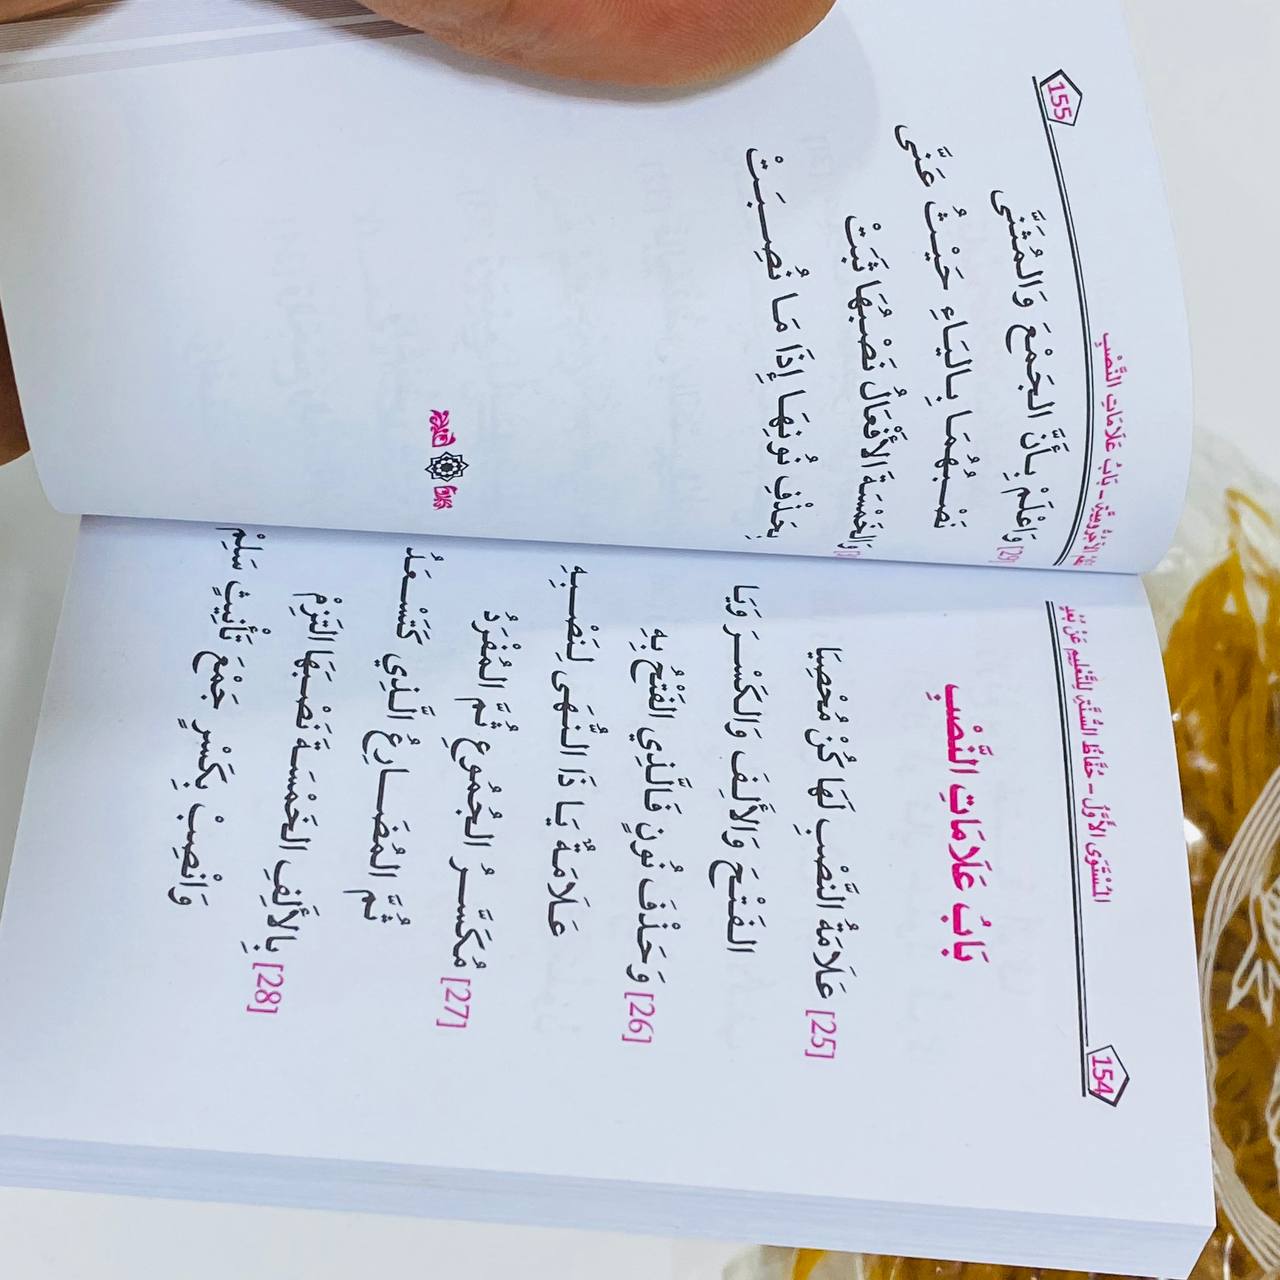 154
المُسْتَوَى الأَوَّلُ - حُفَّاظُ السُّنَّةِ لِلتَّعْلِيمِ عَنْ بُعْدٍ
بَابُ عَلَامَاتِ النَّصْبِ
[25] عَلَامَةُ النَّصْبِ لَهَا كُنْ مُحْصِيَا
الفَتْحَ وَالأَلِفَ وَالكَسْرَ وَيَا
[26] وَحَذْفَ نُونٍ فَالَّذِي الفَتْحُ بِهِ
عَلَامَةٌ يَا ذَا النُّهَى لِنَصْبِهِ
[27] مُكَسَّرُ الجُمُوعِ ثُمَّ المُفْرَدُ
ثُمَّ المُضَارِعُ الَّذِي كَتَسْعَدُ
[28] بِالأَلِفِ الخَمْسَةَ نَصْبَهَا التَزِمْ
وَانْصِبْ بِكَسْرٍ جَمْعَ تَأْنِيثٍ سَلِمْ
الآجُرُّومِيَّةِ - بَابُ عَلَامَاتِ النَّصْبِ
155
[29] وَاعْلَمْ بِأَنَّ الجَمْعَ وَالمُثَنَّى
نَصْبُهُمَا بِاليَاءِ حَيْثُ عَنَّى
وَالخَمْسَةُ الأَفْعَالُ نَصْبُهَا ثَبَتْ
بِحَذْفِ نُونِهَا إِذَا مَا نُصِبَتْ